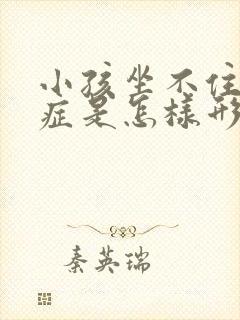 小孩坐不住
症是怎樣形
秦英瑞